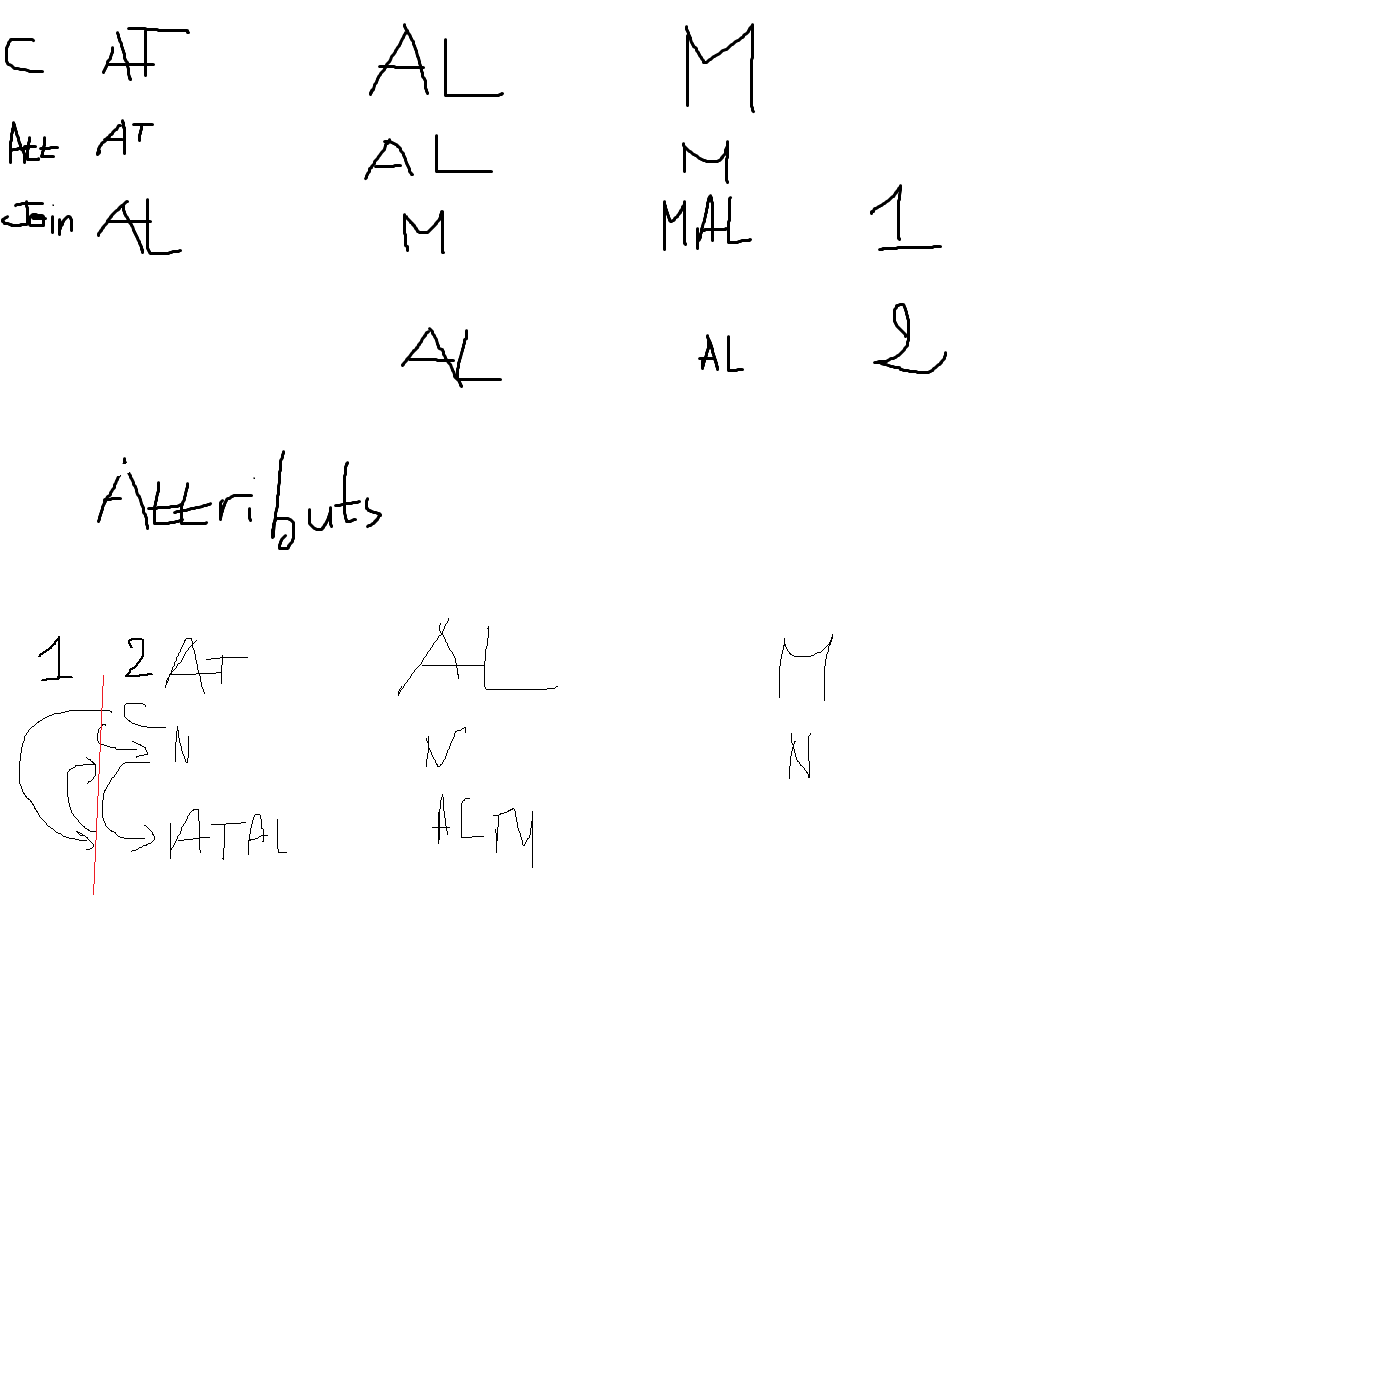 C AT AL M
Att AT AL M
Join AL M MAL 1
AL AL 2
Attributs
1 2 AT AL M
N N N
ATAL ALM